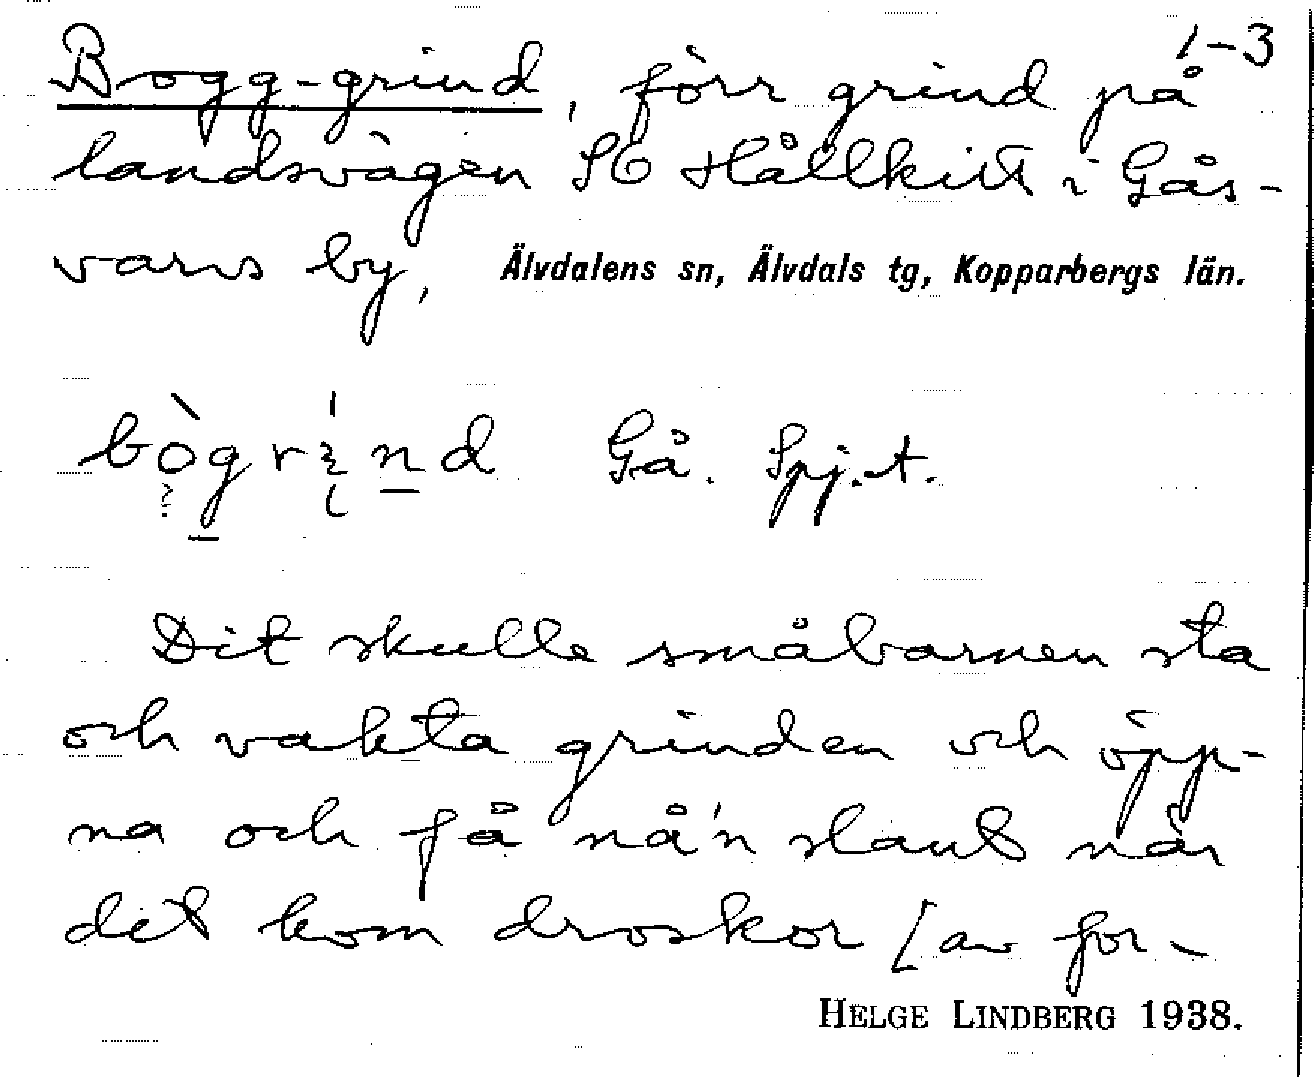 1-3
Bogg-grind, förr grind på
landsvägen SO Hållkitt i Gås-
varvs by, Älvdalens sn, Älvdals tg, Kopparbergs län.
Gå. Spj.t.
Dit skulle småbarnen sta
och vakta grinden och öpp-
na och få nå'n slant när
det kom droskor [av for-
HELGE LINDBERG 1938.